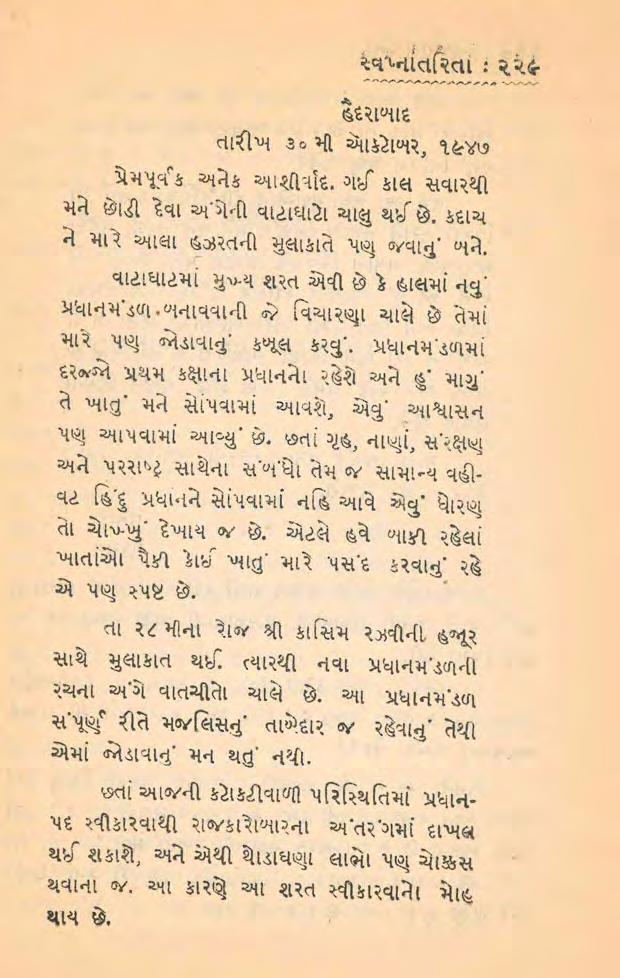 સ્વપ્નાંતરિતા : ૨૨૯
હૈદરાબાદ
તારીખ ૩૦ મી ઑક્ટોબર, ૧૯૪૭
પ્રેમપૂર્વક અનેક આશીર્વાદ. ગઈ કાલ સવારથી
મને છોડી દેવા અંગેની વાટાઘાટો ચાલુ થઈ છે. કદાચ
ને મારે આલા હઝરતની મુલાકાતે પણ જવાનું બને.
વાટાઘાટમાં મુખ્ય શરત એવી છે કે હાલમાં નવું
પ્રધાનમંડળ બનાવવાની જે વિચારણા ચાલે છે તેમાં
મારે પણ જોડાવાનું કબૂલ કરવું. પ્રધાનમંડળમાં
દરજ્જો પ્રથમ કક્ષાના પ્રધાનનો રહેશે અને હું માગું
તે ખાતું મને સોંપવામાં આવશે, એવું આશ્વાસન
પણ આપવામાં આવ્યું છે. છતાં ગૃહ, નાણાં, સંરક્ષણ
અને પરરાષ્ટ્ર સાથેના સંબંધો તેમ જ સામાન્ય વહી-
વટ હિંદુ પ્રધાનને સોંપવામાં નહિ આવે એવું ધોરણ
તો ચોખ્ખું દેખાય જ છે. એટલે હવે બાકી રહેલાં
ખાતાંઓ પૈકી કોઈ ખાતું મારે પસંદ કરવાનું રહે
એ પણ સ્પષ્ટ છે.
તા ૨૮ મીના રોજ શ્રી કાસિમ રઝવીની હજૂર
સાથે મુલાકાત થઈ. ત્યારથી નવા પ્રધાનમંડળની
રચના અંગે વાતચીતો ચાલે છે. આ પ્રધાનમંડળ
સંપૂર્ણ રીતે મજલિસનું તાબેદાર જ રહેવાનું તેથી
એમાં જોડાવાનું મન થતું નથી.
છતાં આજની કટોકટીવાળી પરિસ્થિતિમાં પ્રધાન-
પદ સ્વીકારવાથી રાજકારોબારના અંતરંગમાં દાખલ
થઈ શકાશે, અને એથી થોડાઘણા લાભો પણ ચોક્કસ
થવાના જ. આ કારણે આ શરત સ્વીકારવાનો મોહ
થાય છે.